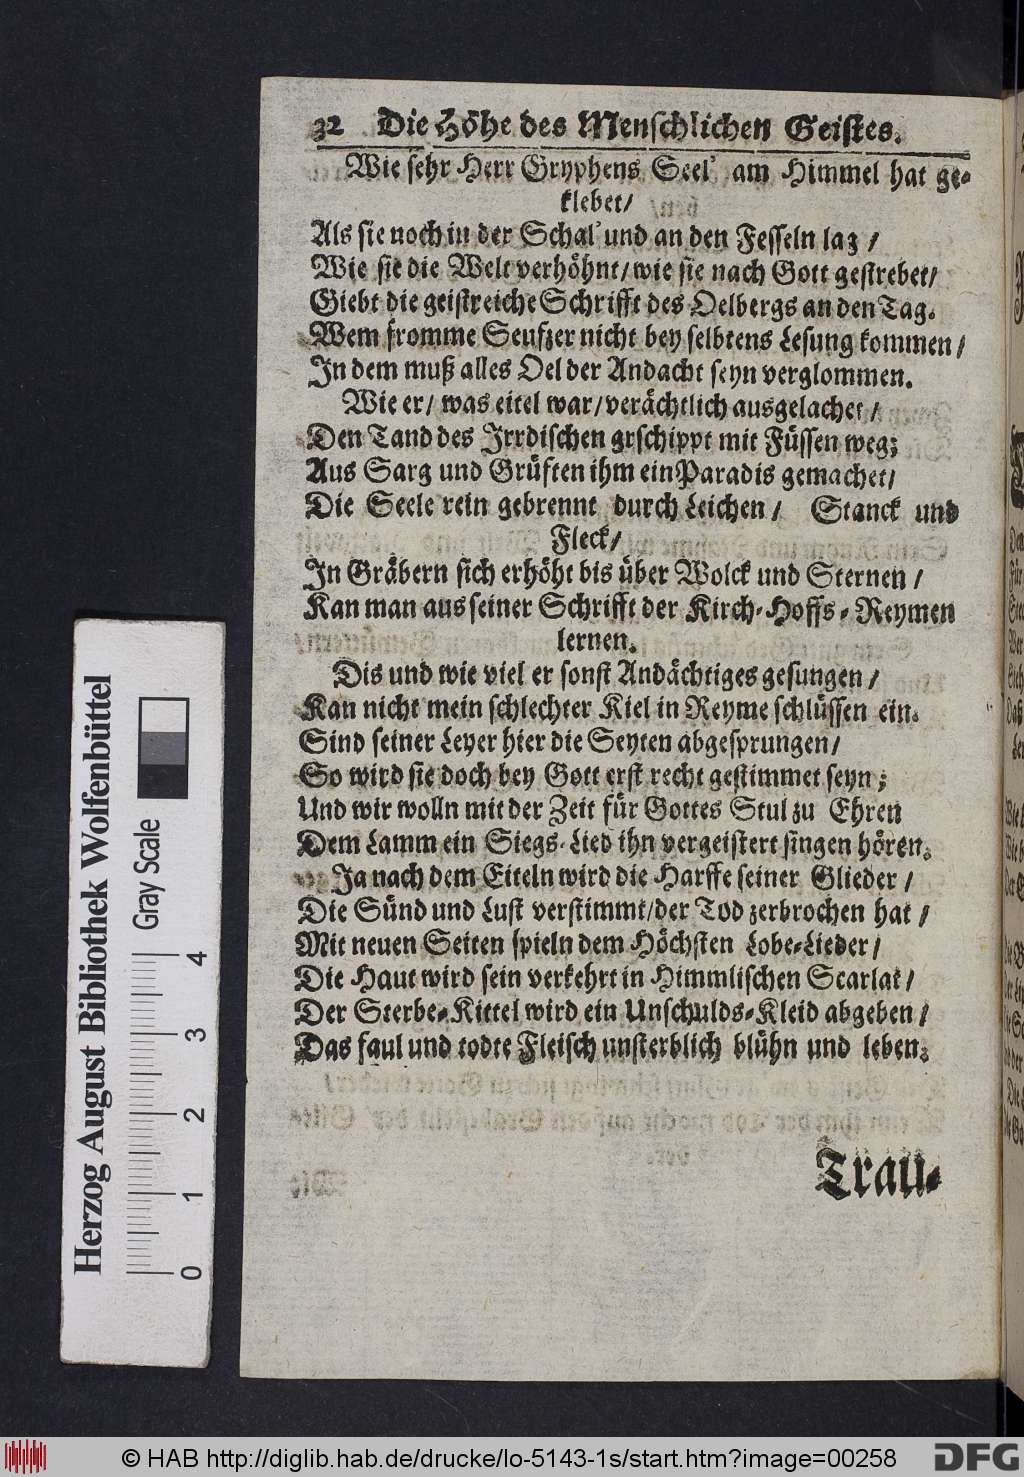 32 Die Höhe des Menschlichen Geistes.
Wie sehr Herr Gryphens Seel' am Himmel hat ge-
klebet/
Als sie noch in der Schal' und an den Fesseln lag /
Wie sie die Welt verhöhnt/ wie sie nach Gott gestrebet/
Giebt die geistreiche Schrifft des Oelbergs an den Tag.
Wem fromme Seufzer nicht bey selbtens Lesung kommen /
In dem muß alles Oel der Andacht seyn verglommen.
Wie er/ was eitel war/ verächtlich ausgelachet /
Den Tand des Irrdischen geschippt mit Füssen weg;
Aus Sarg und Grüften ihm ein Paradis gemachet/
Die Seele rein gebrennt durch Leichen / Stanck und
Fleck/
In Gräbern sich erhöht bis über Wolck und Sternen /
Kan man aus seiner Schrifft der Kirch-Hoffs-Reymen
lernen.
Dis und wie viel er sonst Andächtiges gesungen /
Kan nicht mein schlechter Kiel in Reyme schlüssen ein.
Sind seiner Leyer hier die Seyten abgesprungen/
So wird sie doch bey Gott erst recht gestimmet seyn;
Und wir wolln mit der Zeit für Gottes Stul zu Ehren
Dem Lamm ein Siegs-Lied ihn vergeistert singen hören.
Ja nach dem Eiteln wird die Harffe seiner Glieder /
Die Sünd und Lust verstimmt/ der Tod zerbrochen hat /
Mit neuen Seiten spieln dem Höchsten Lobe-Lieder/
Die Haut wird sein verkehrt in Himmlischen Scarlat/
Der Sterbe-Kittel wird ein Unschulds-Kleid abgeben /
Das faul und todte Fleisch unsterblich blühn und leben;
Trau-
Herzog August Bibliothek Wolfenbüttel
Gray Scale
0 1 2 3 4
© HAB http://diglib.hab.de/drucke/lo-5143-1s/start.htm?image=00258
DFG